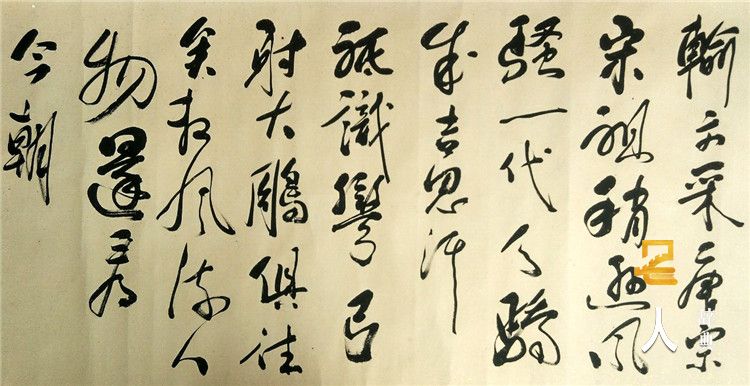 輸文采唐宗
宋祖稍遜風
騷一代天驕
成吉思汗
祇識彎弓
射大鵰俱往
矣數風流人
物還看
今朝
人